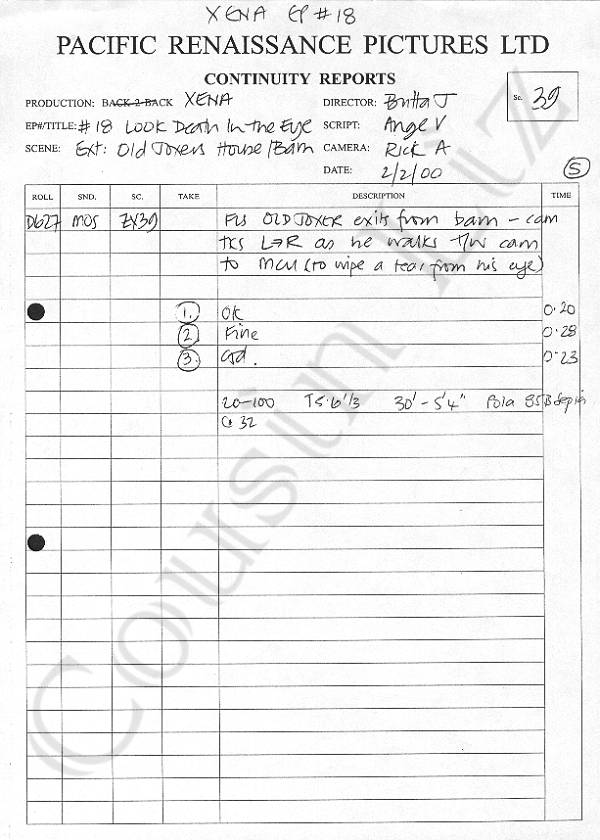 XENA EP #18
PACIFIC RENAISSANCE PICTURES LTD
CONTINUITY REPORTS
PRODUCTION: BACK 2 BACK XENA
DIRECTOR: Butta J
Sc. 39
EP#/TITLE: #18 Look Death In the Eye
SCRIPT: Ange V
SCENE: Ext: Old Joxers House/Barn
CAMERA: Rick A
DATE: 2/2/00
5
ROLL SND. SC. TAKE DESCRIPTION TIME
D627 MOS ZX39 FLS OLD JOXER exits from barn - cam
tks L→R as he walks T/W cam
to MCU (to wipe a tear from his eye)
1. OK 0.20
2. Fine 0.28
3. Gd. 0.23
20-100 T5.6 1/3 30' - 5'4" Pola 85B sepia
@ 32
Cousin Liz